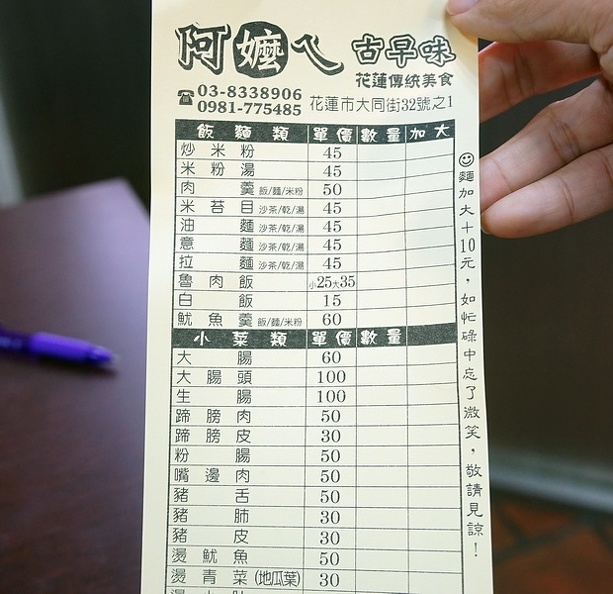 阿嬤ㄟ 古早味
花蓮傳統美食
☎03-8338906
0981-775485 花蓮市大同街32號之1
飯麵類 單價 數量 加大
炒米粉 45
米粉湯 45
肉羹 飯/麵/米粉 50
米苔目 沙茶/乾/湯 45
油麵 沙茶/乾/湯 45
意麵 沙茶/乾/湯 45
拉麵 沙茶/乾/湯 45
魯肉飯 小25大35
白飯 15
魷魚羹 飯/麵/米粉 60
小菜類 單價 數量
大腸 60
大腸頭 100
生腸 100
蹄膀肉 50
蹄膀皮 30
粉腸 50
嘴邊肉 50
豬舌 50
豬肺 30
豬皮 30
燙魷魚 50
燙青菜(地瓜葉) 30
麵加大+10元，如忙碌中忘了微笑，敬請見諒！